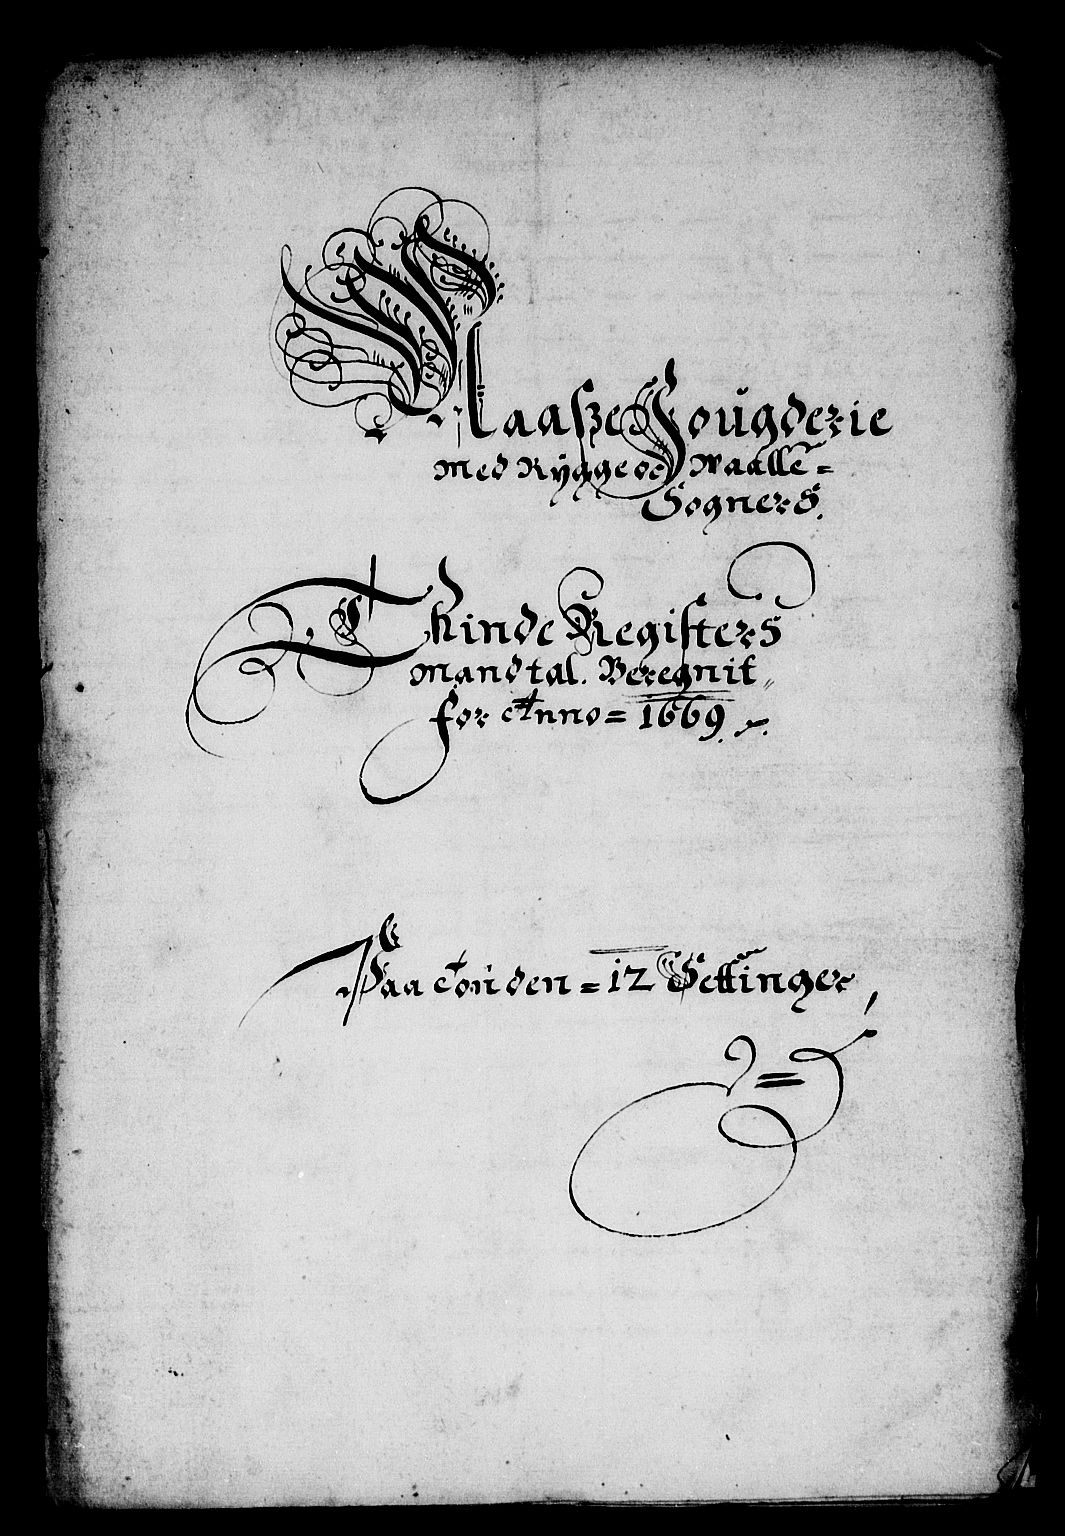 Maasße Fougderie
med Rygge oc Waalle =
Sogners.
Thinde Registers
Mandtal. Beregnit
for Anno = 1669.
Paa Tonden = 12 Settinger